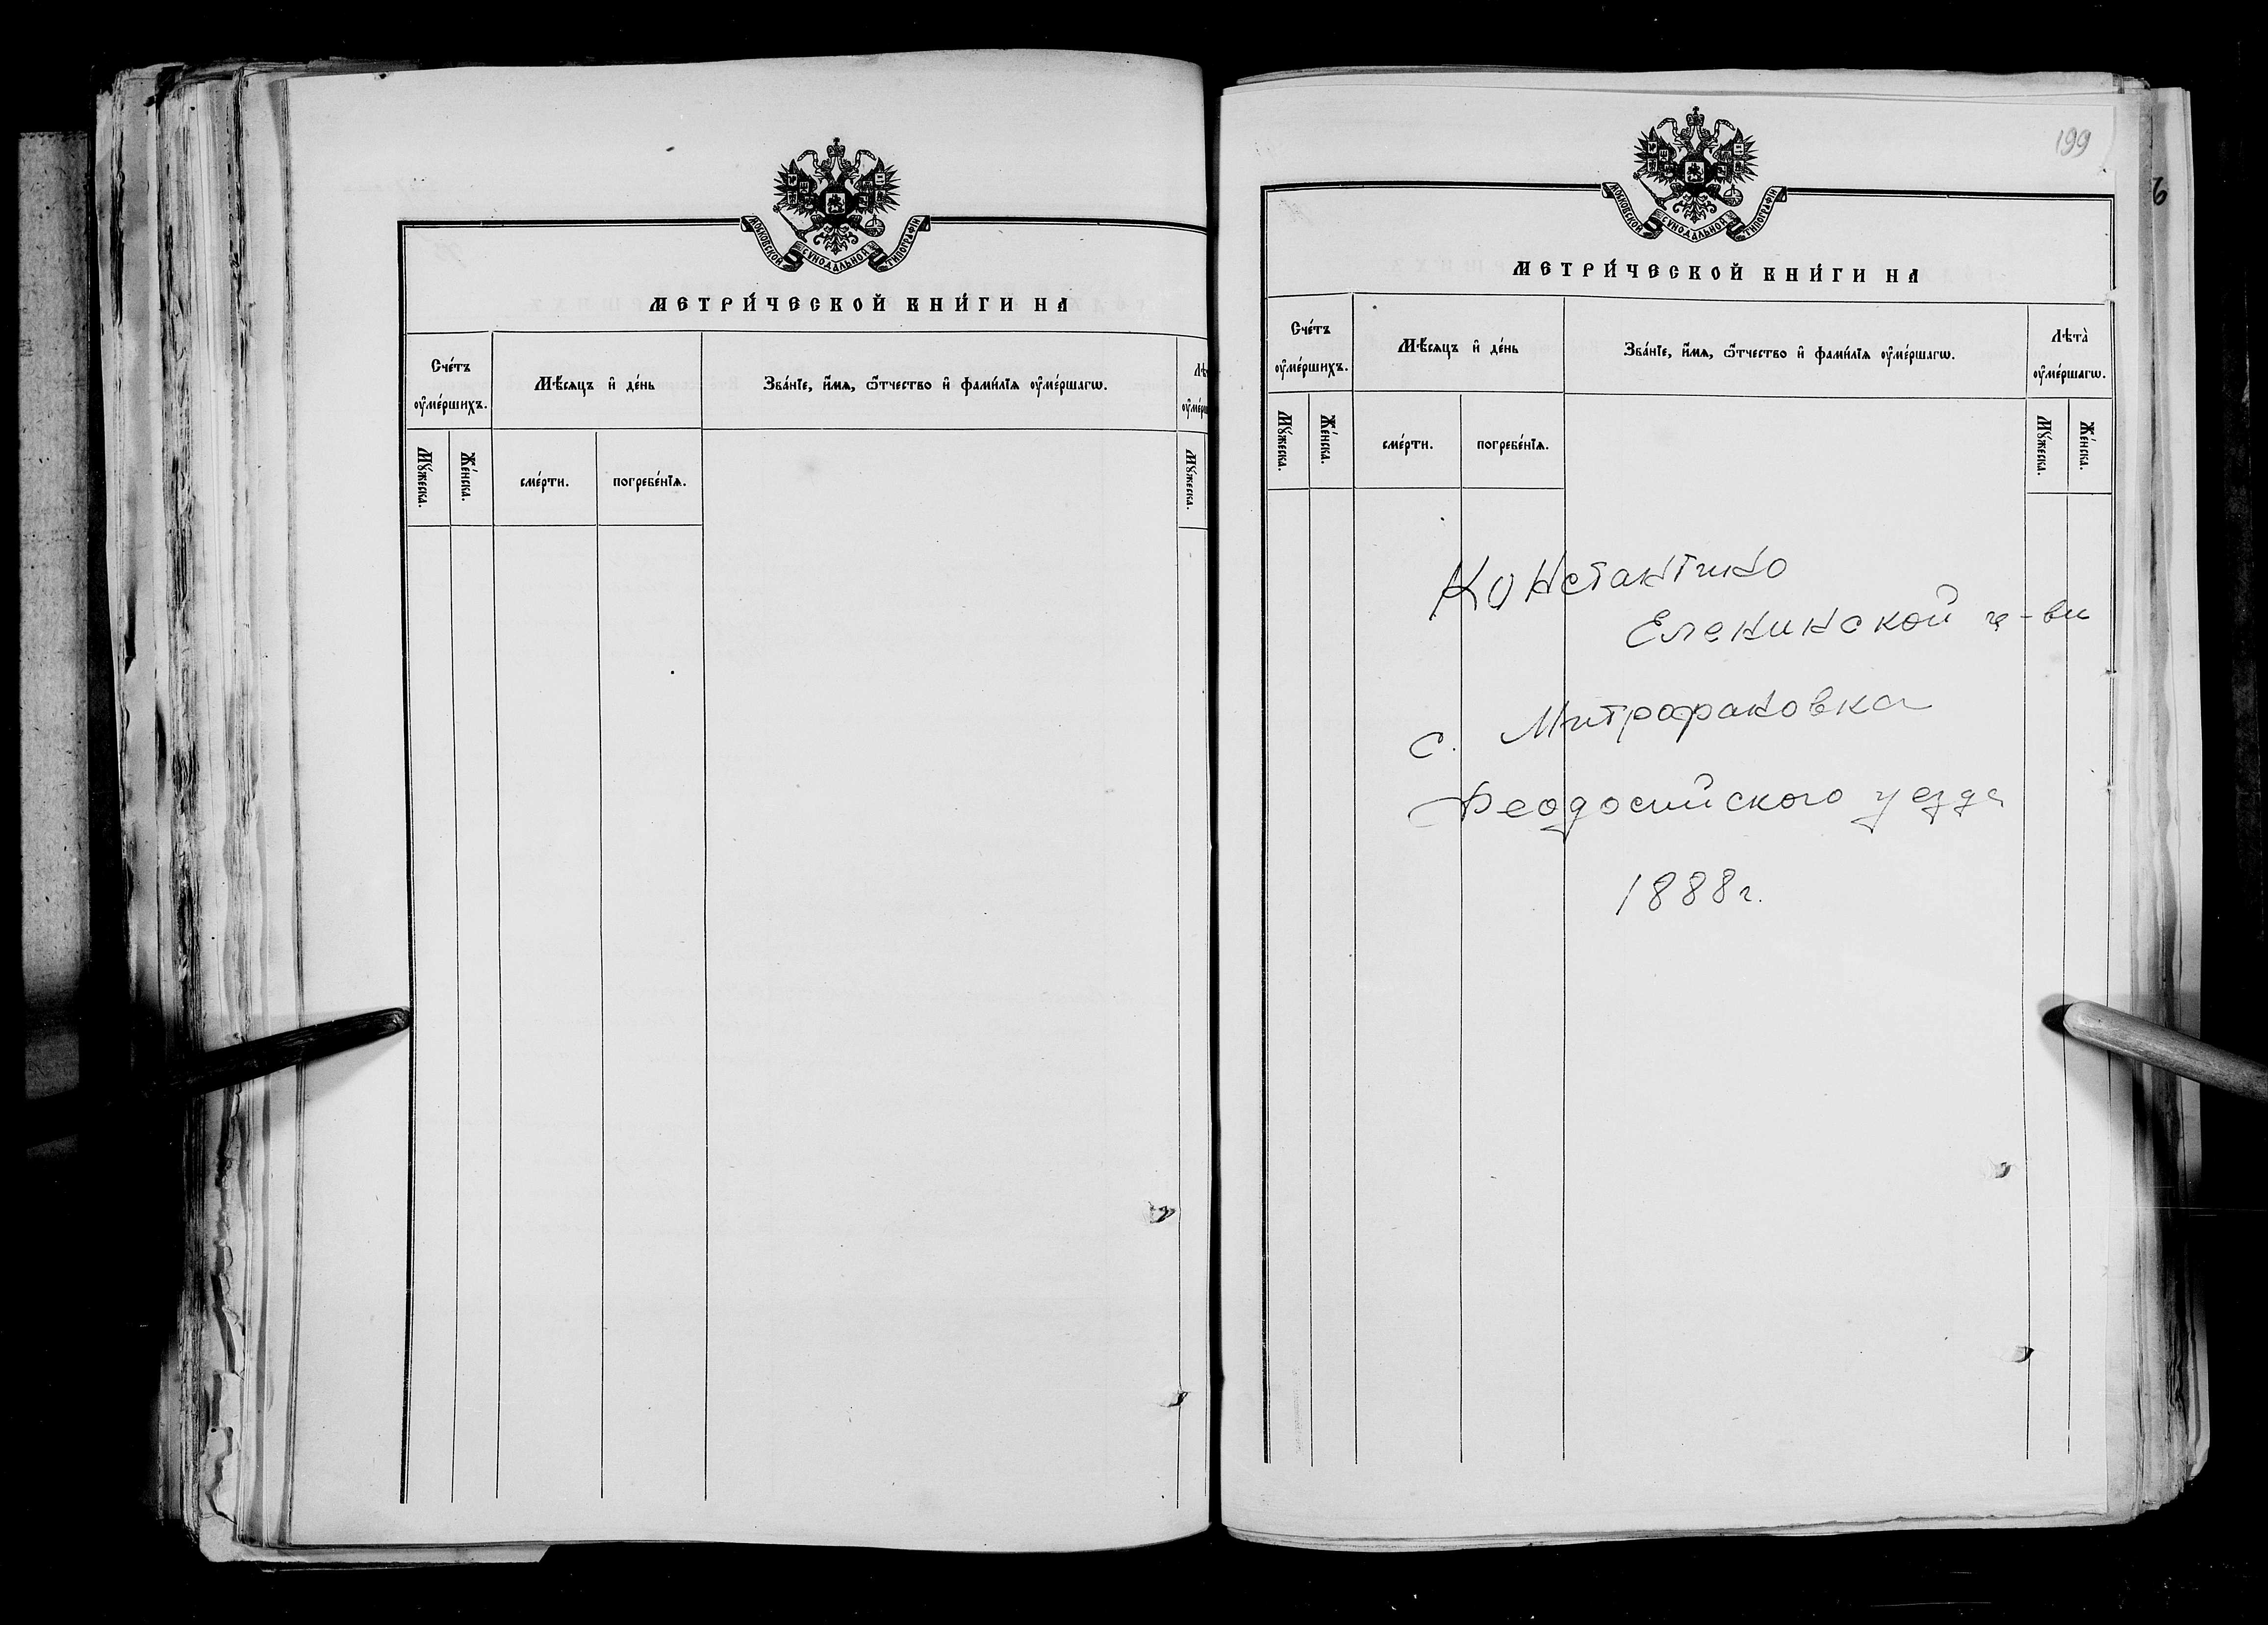 МОСКОВСКОЙ СУНОДАЛЬНОЙ ТИПОГРАФІИ
МЕТРИ́ЧЕСКОЙ КНИ́ГИ НА
Сче́тъ
оу҆ме́ршихъ.
Мѣ́сяцъ и҆ де́нь
Зва́нїе, и҆́мѧ, ѻ҆́тчество и҆ фами́лїѧ оу҆ме́ршагѡ.
Мꙋ́жеска.
Же́нска.
сме́рти.
погребе́нїѧ.
Мꙋ́жеска.
199
МОСКОВСКОЙ СУНОДАЛЬНОЙ ТИПОГРАФІИ
МЕТРИ́ЧЕСКОЙ КНИ́ГИ НА
Сче́тъ
оу҆ме́ршихъ.
Мѣ́сяцъ и҆ де́нь
Зва́нїе, и҆́мѧ, ѻ҆́тчество и҆ фами́лїѧ оу҆ме́ршагѡ.
Лѣта̀
оу҆ме́ршагѡ.
Мꙋ́жеска.
Же́нска.
сме́рти.
погребе́нїѧ.
Мꙋ́жеска.
Же́нска.
Константино
Еленинской ц-ви
с. Митрофановка
Феодосийского уезда
1888г.